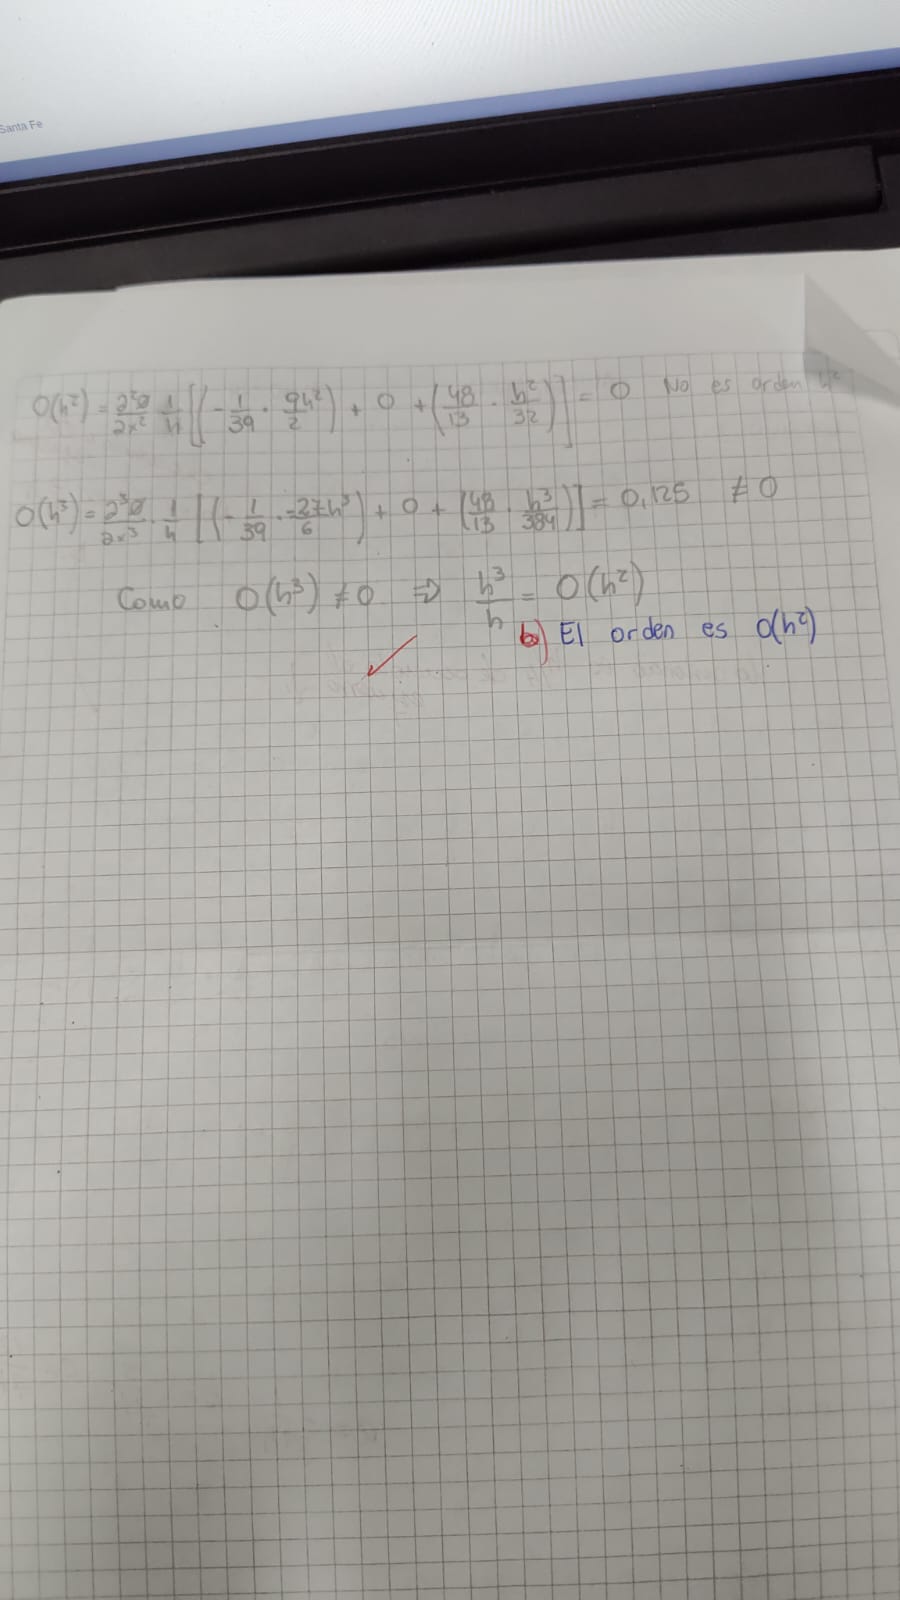 Santa Fe
O(h²) = ∂²Ø/∂x² 1/h [(-1/39 · 9h²/2) + 0 + (48/13 · h²/32)] = 0 No es orden h²
O(h³) = ∂³Ø/∂x³ 1/h [(-1/39 · -27h³/6) + 0 + (48/13 · h³/384)] = 0,125 ≠ 0
Como O(h³) ≠ 0 ⇒ h³/h = O(h²)
b) El orden es O(h²)